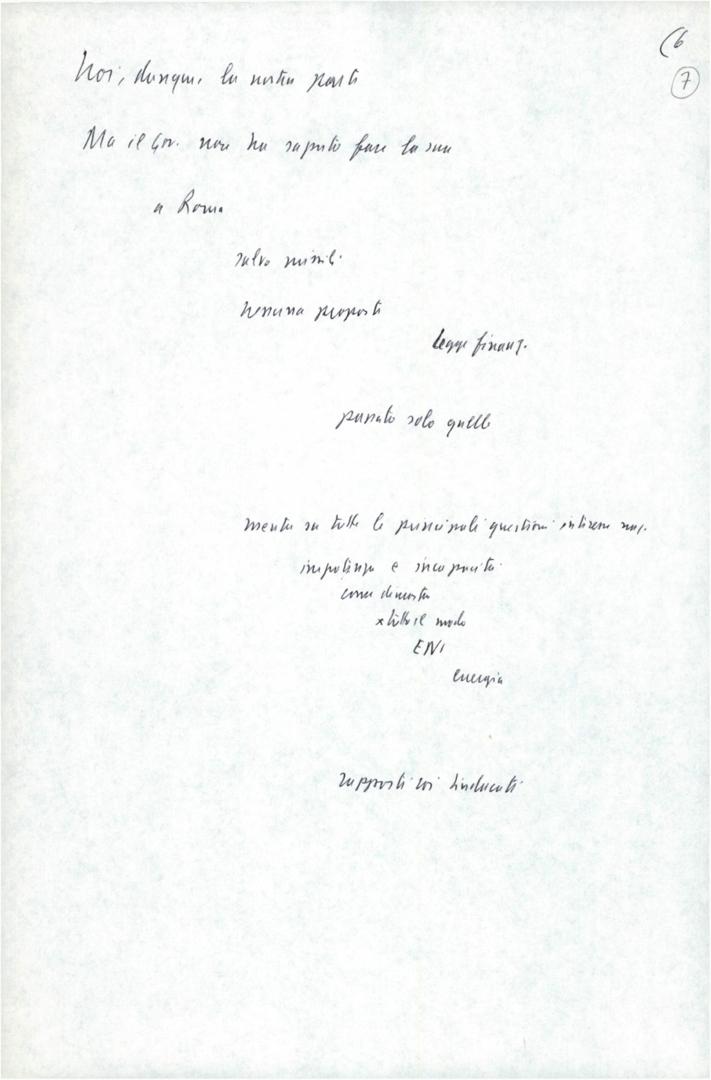 (6
7
Noi, dunque, la nostra parte
Ma il Gov. non ha saputo fare la sua
a Roma
salvo missili
nessuna proposta
legge finanz.
passato solo quello
mentre su tutte le principali questioni interne
impotenza e incapacità
come dimostra
x tutto il modo
ENI
energia
rapporti coi sindacati